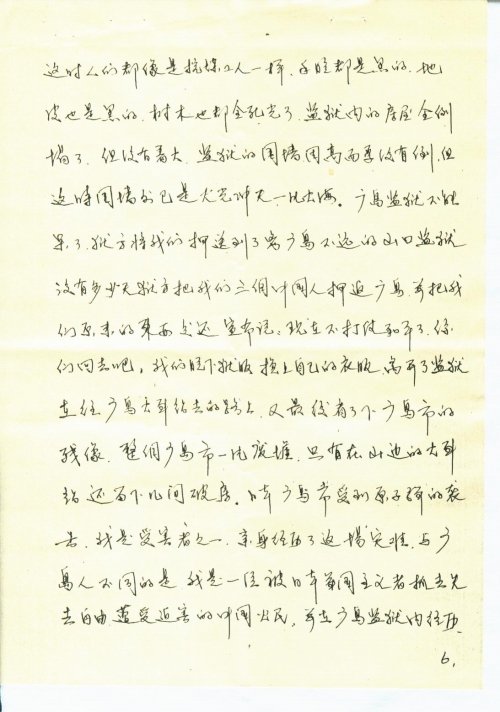 这时人们都像是挖煤工人一样，手脸都是黑的，地
皮也是黑的，树木也都全死光了，监狱内的房屋全倒
塌了，但没有着火，监狱的围墙因高而厚没有倒，但
这时围墙外已是火光冲天一片火海。广岛监狱不能
呆了，狱方将我们押送到了离广岛不远的山口监狱
没有多少天狱方把我们三個中国人押迴广岛，并把我
们原来的东西点还宣布说：现在不打仗和平了，你
们回去吧，我们脱下狱服换上自己的衣服，离开了监狱
在往广岛火车站去的路上，又最后看了下广岛市的
残像，整個广岛市一片废墟，只有在山边的火车
站还留下几间破房。日本广岛市受到原子弹的袭
击，我是受害者之一，亲身经历了这場灾难，与广
岛人不同的是我是一位被日本军国主义者抓去失
去自由遭受迫害的中国公民，并在广岛监狱内经历
6.